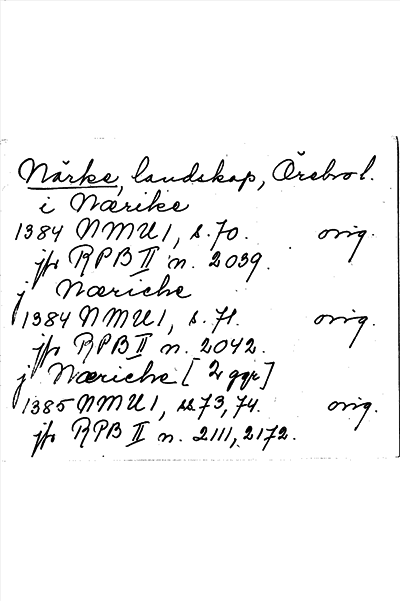 Närke, landskap, Örebro l.
i Nærike
1384 NMU 1, s. 70. orig.
jfr RPB II n. 2039.
j Næriche
1384 NMU 1, s. 71. orig.
jfr RPB II n. 2042.
j Næriche [2 ggr]
1385 NMU 1, ss. 73, 74. orig.
jfr RPB II n. 2111, 2172.